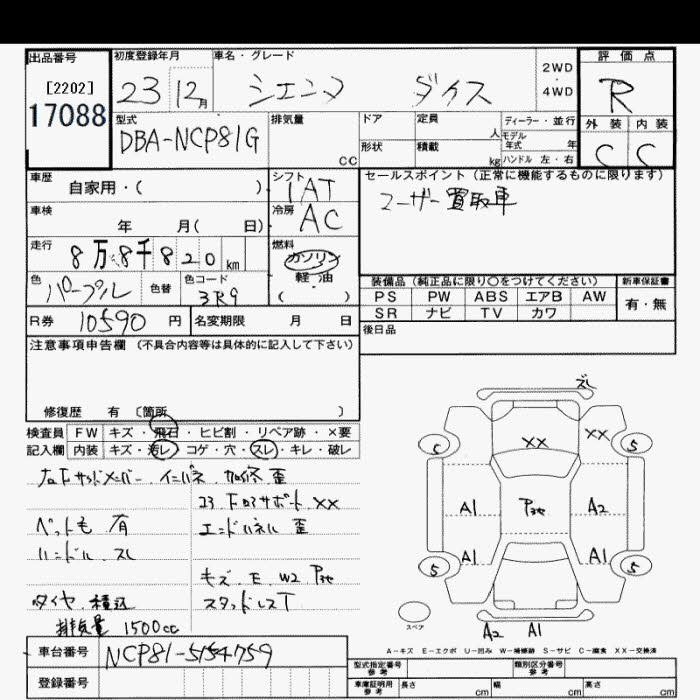 出品番号
[2202]
17088
初度登録年月
23 12月
車名・グレード
シエンタ ダイス
2WD
4WD
評価点
R
外装 内装
C C
型式
DBA-NCP81G
排気量
CC
ドア
定員
人
ディーラー・並行
モデル年式 年
形状
積載
kg
ハンドル 左・右
車歴
自家用・( )
シフト
IAT
セールスポイント (正常に機能するものに限ります)
ユーザー買取車
車検
年 月( 日)
冷房
AC
走行
8万8千820km
燃料
ガソリン
軽油
( )
色
パープル
色替
色コード
3R9
装備品 (純正品に限り○をつけてください)
新車保証書
PS PW ABS エアB AW
有・無
SR ナビ TV カワ
R券 10590円
名変期限 月 日
後日品
注意事項申告欄 (不具合内容等は具体的に記入して下さい)
修復歴 有 〔箇所 〕
検査員
記入欄
FW キズ・飛石・ヒビ割・リペア跡・×要
内装 キズ・汚レ・コゲ・穴・スレ・キレ・破レ
歪
XX
ペット毛 有
エンドパネル 歪
ハンドル スレ
キズ.E.W2
タイヤ.積込
スタッドレスT
排気量 1500cc
車台番号 NCP81-5154759
登録番号
ズレ
XX
XX
5
5
A1
A2
A1
A1
5
5
スペア
A2 A1
A-キズ E-エクボ U-凹み W-補修跡 S-サビ C-腐食 XX-交換済
型式指定番号
参考
類別区分番号
参考
車庫証明用
参考
長さ cm 幅 cm 高さ cm